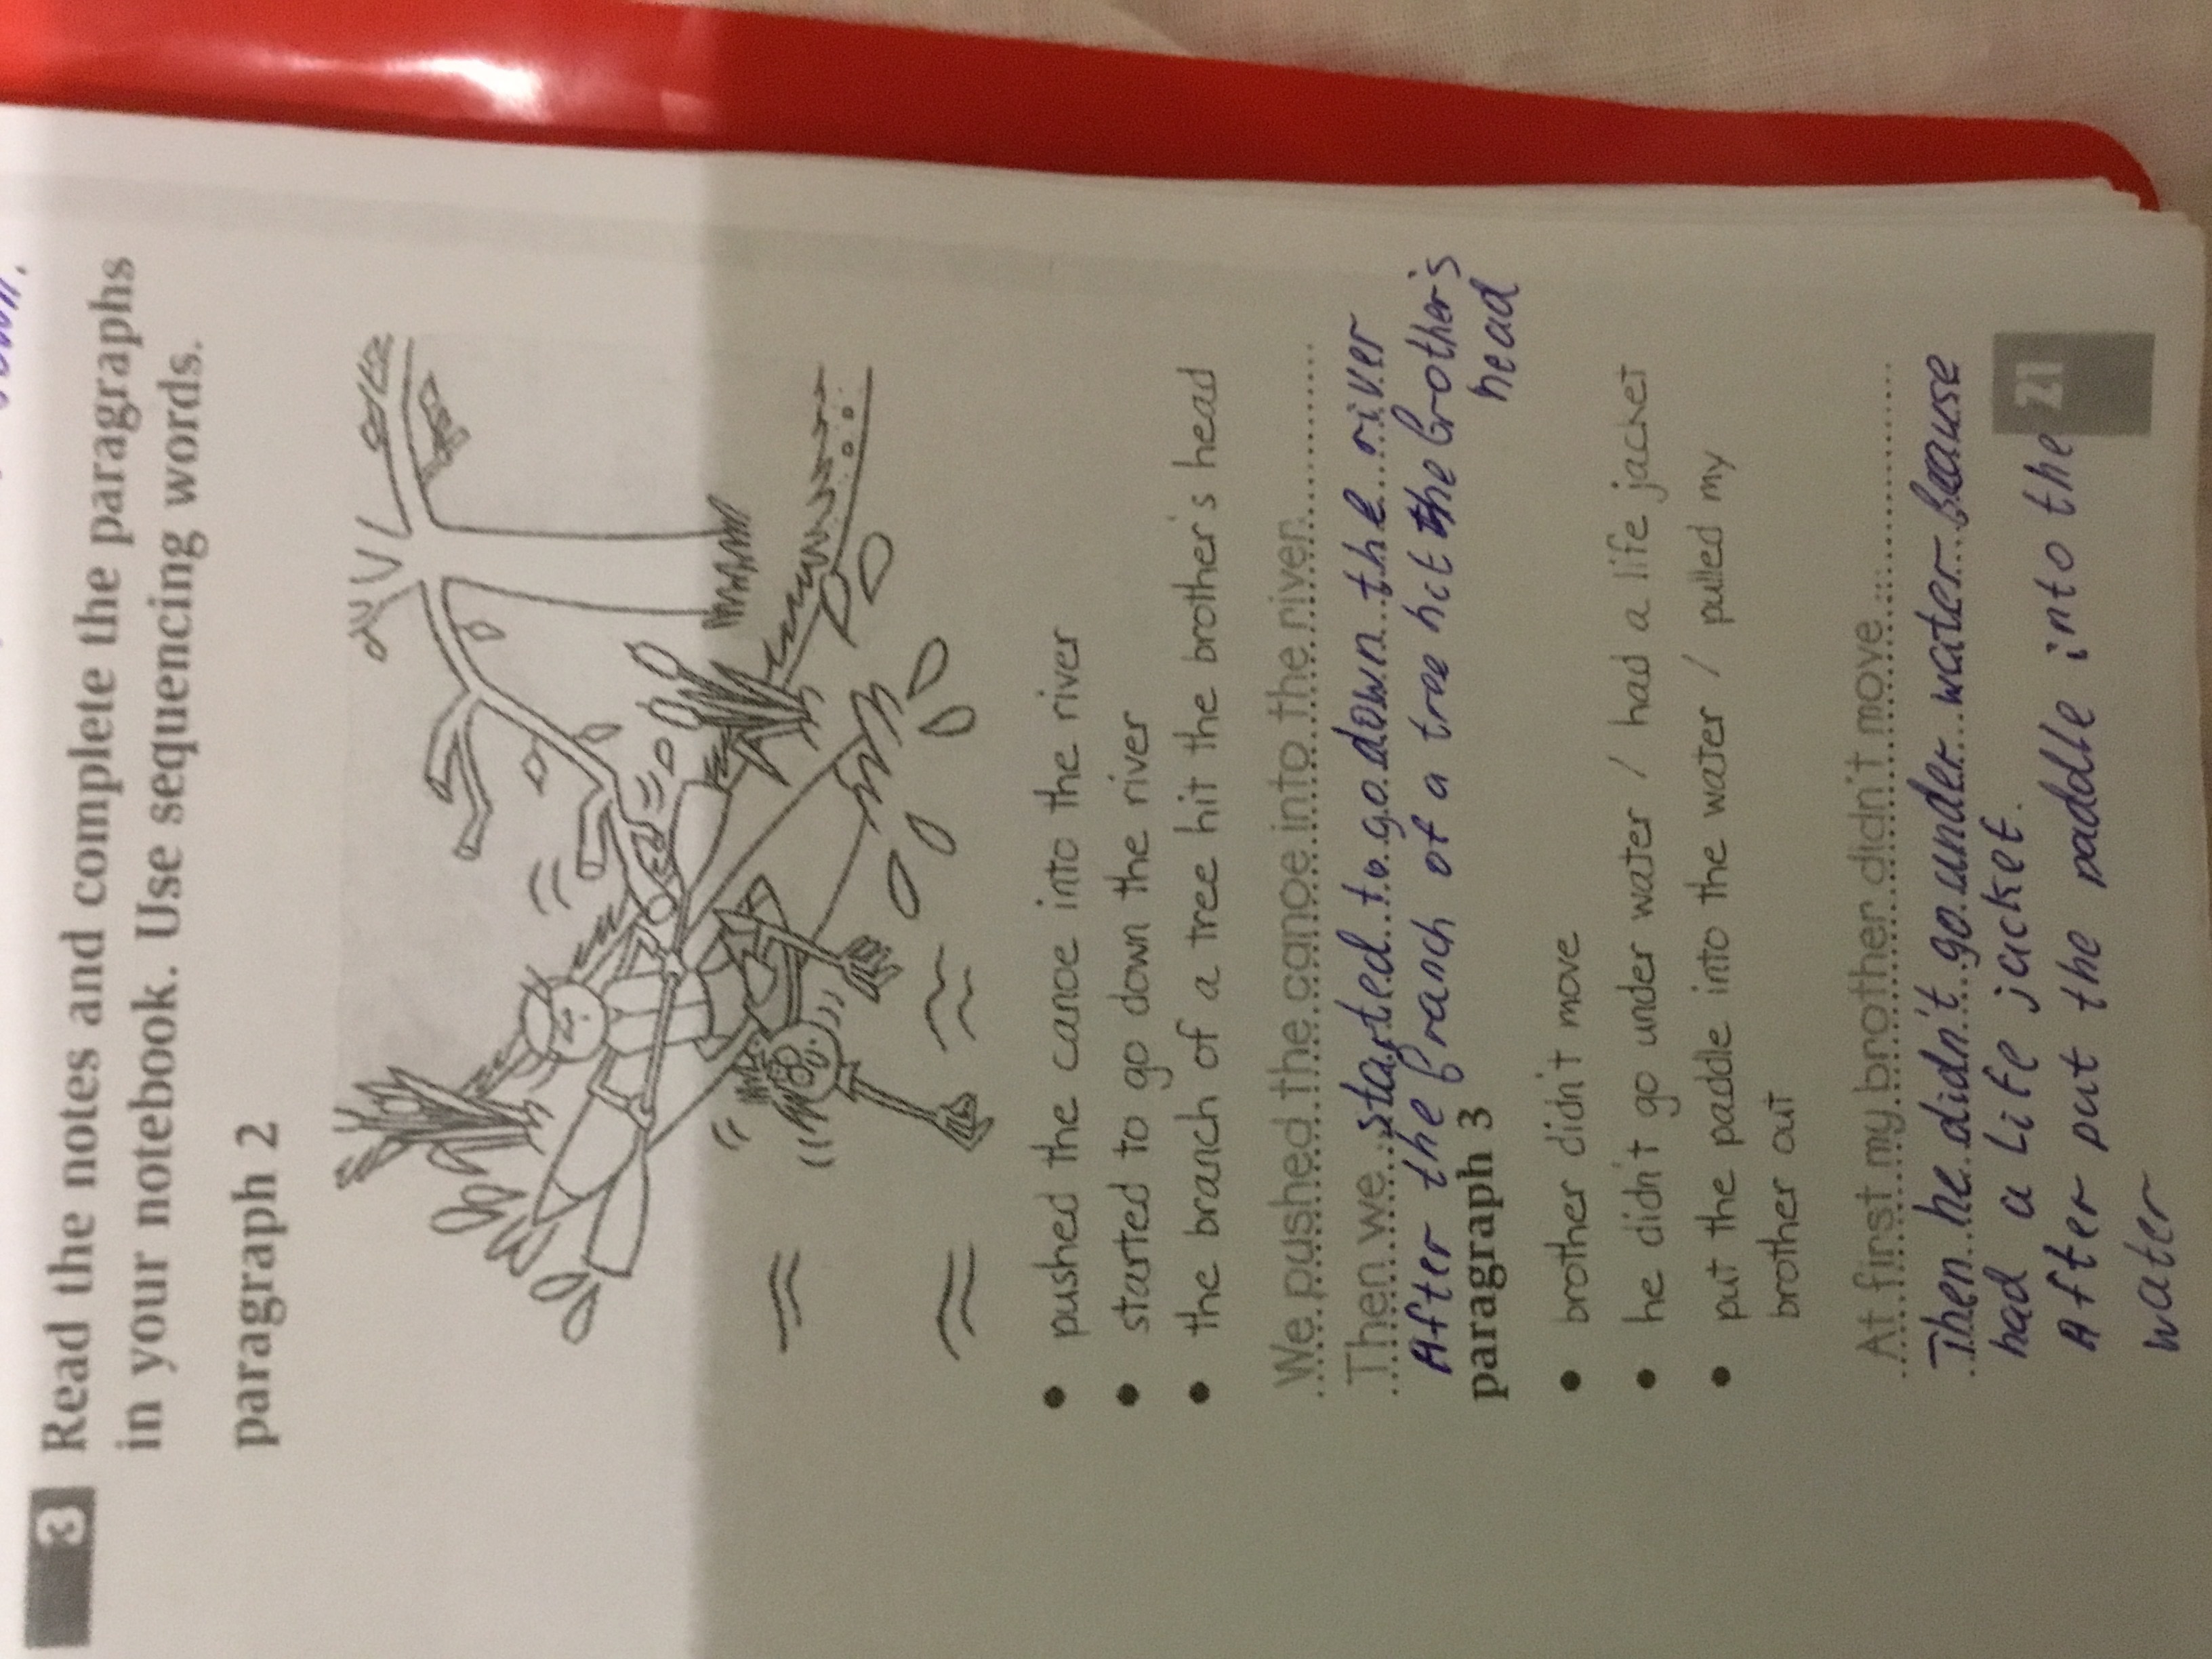 3 Read the notes and complete the paragraphs
in your notebook. Use sequencing words.
paragraph 2
• pushed the canoe into the river
• started to go down the river
• the branch of a tree hit the brother's head
We pushed the canoe into the river.
Then we started to go down the river
After the branch of a tree hit the brother's
head
paragraph 3
• brother didn't move
• he didn't go under water / had a life jacket
• put the paddle into the water / pulled my
brother out
At first my brother didn't move.
Then he didn't go under water beause
had a life jacket.
After put the paddle into the
water
21